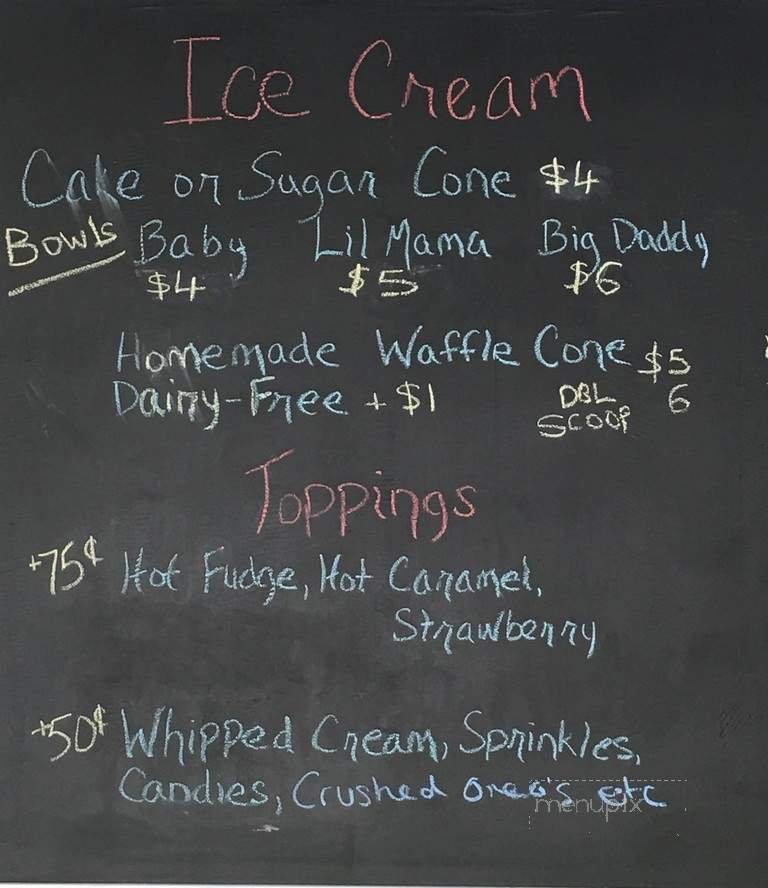 Ice Cream
Cake or Sugar Cone $4
Bowls Baby Lil Mama Big Daddy
$4 $5 $6
Homemade Waffle Cone $5
Dairy-Free + $1 DBL 6
SCOOP
Toppings
+75¢ Hot Fudge, Hot Caramel,
Strawberry
+50¢ Whipped Cream, Sprinkles,
Candies, Crushed Oreo's etc
menupix